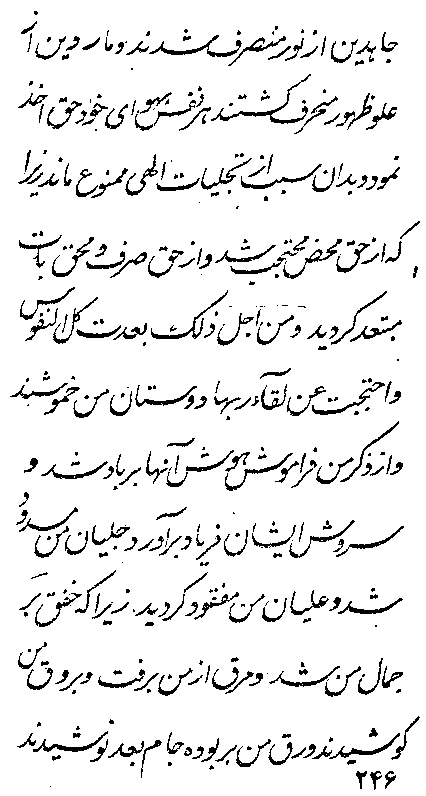 جاهدین از نور منصرف شدند و ماردین از
علو ظهور منحرف گشتند هر نفس بهوای خود حق اخذ
نمود و بدان سبب از تجلیات الهی ممنوع ماند زیرا
که از حق محض محتجب شد و از حق صرف و محق بات
مبتعد گردید و من اجل ذلک بعدت کل النفوس
و احتجبت عن لقآء ربها دوستان من خموشیدند
و از ذکر من فراموش هوش آنها برباد شد و
سروش ایشان فریاد برآورد جلیان من مسدود
شد و علیان من مفقود گردید. زیرا که خفق بر
جمال من شد و مرق از من برفت و بروق من
کوشیدند ورق من بربوده جام بعد نوشیدند
۲۴۶